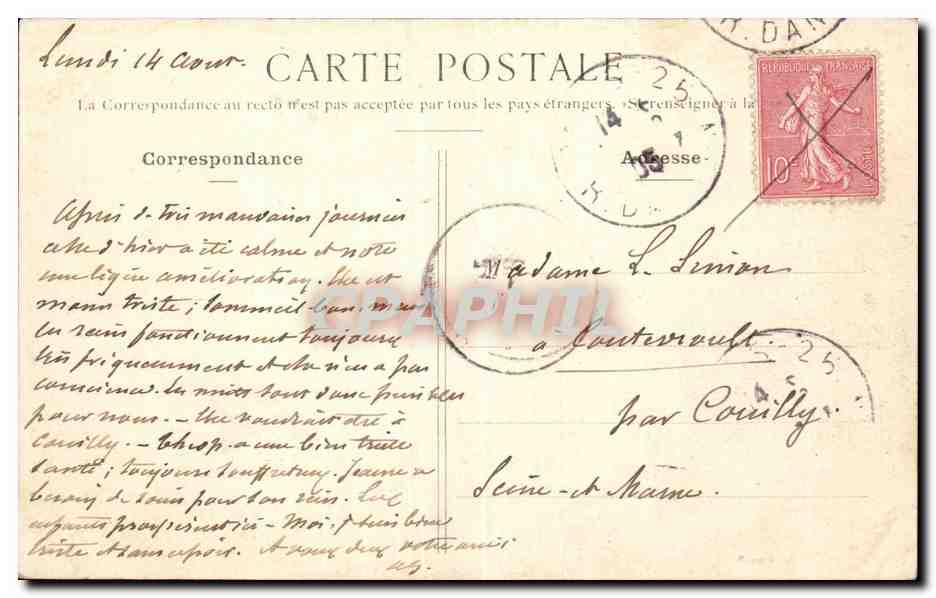 Lundi 14 Aout.
CARTE POSTALE
La Correspondance au recto n'est pas acceptée par tous les pays étrangers. (Se renseigner à la
Correspondance
Adresse
R. DAN
RÉPUBLIQUE FRANÇAISE
10c
POSTES
25
14
05
R. D
25
4
Madame L. Simon
à Coutevroult
par Couilly.
Seine-et-Marne.
CPAPHIL
Après de très mauvaises journées
celle d'hier a été calme et note
une légère amélioration. Elle est
moins triste; sommeil bon, mais
les reins fonctionnent toujours
très fréquemment et elle n'en a pas
conscience. Les nuits sont donc pénibles
pour nous. - Elle voudrait être à
Couilly. - a une bien triste
santé; toujours Jeanne a
besoin de soins pour son rein. Les
enfants - Moi, je suis bien
triste et sans espoir. A vous deux votre amie